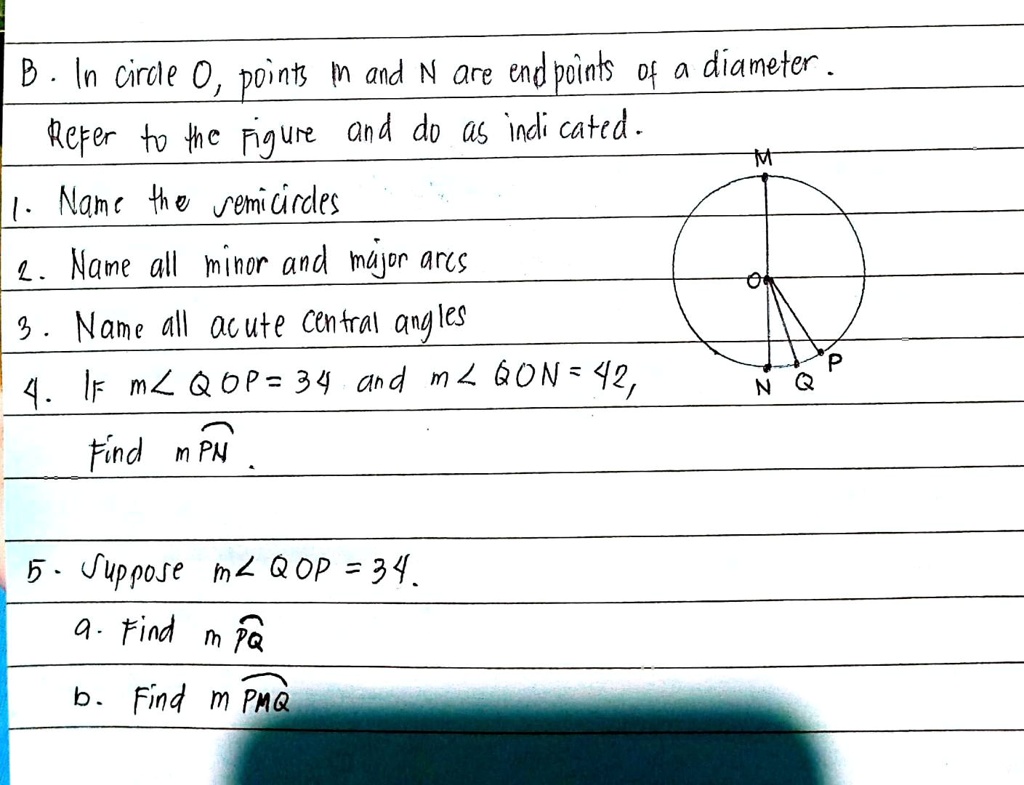 B. In circle O, points M and N are endpoints of a diameter.
Refer to the Figure and do as indicated.
M
1. Name the semicircles
2. Name all minor and major arcs
O
3. Name all acute central angles
P
4. IF m∠QOP = 34 and m∠QON = 42,
N Q
Find m PN.
5. Suppose m∠QOP = 34.
a. Find m PQ
b. Find m PMQ